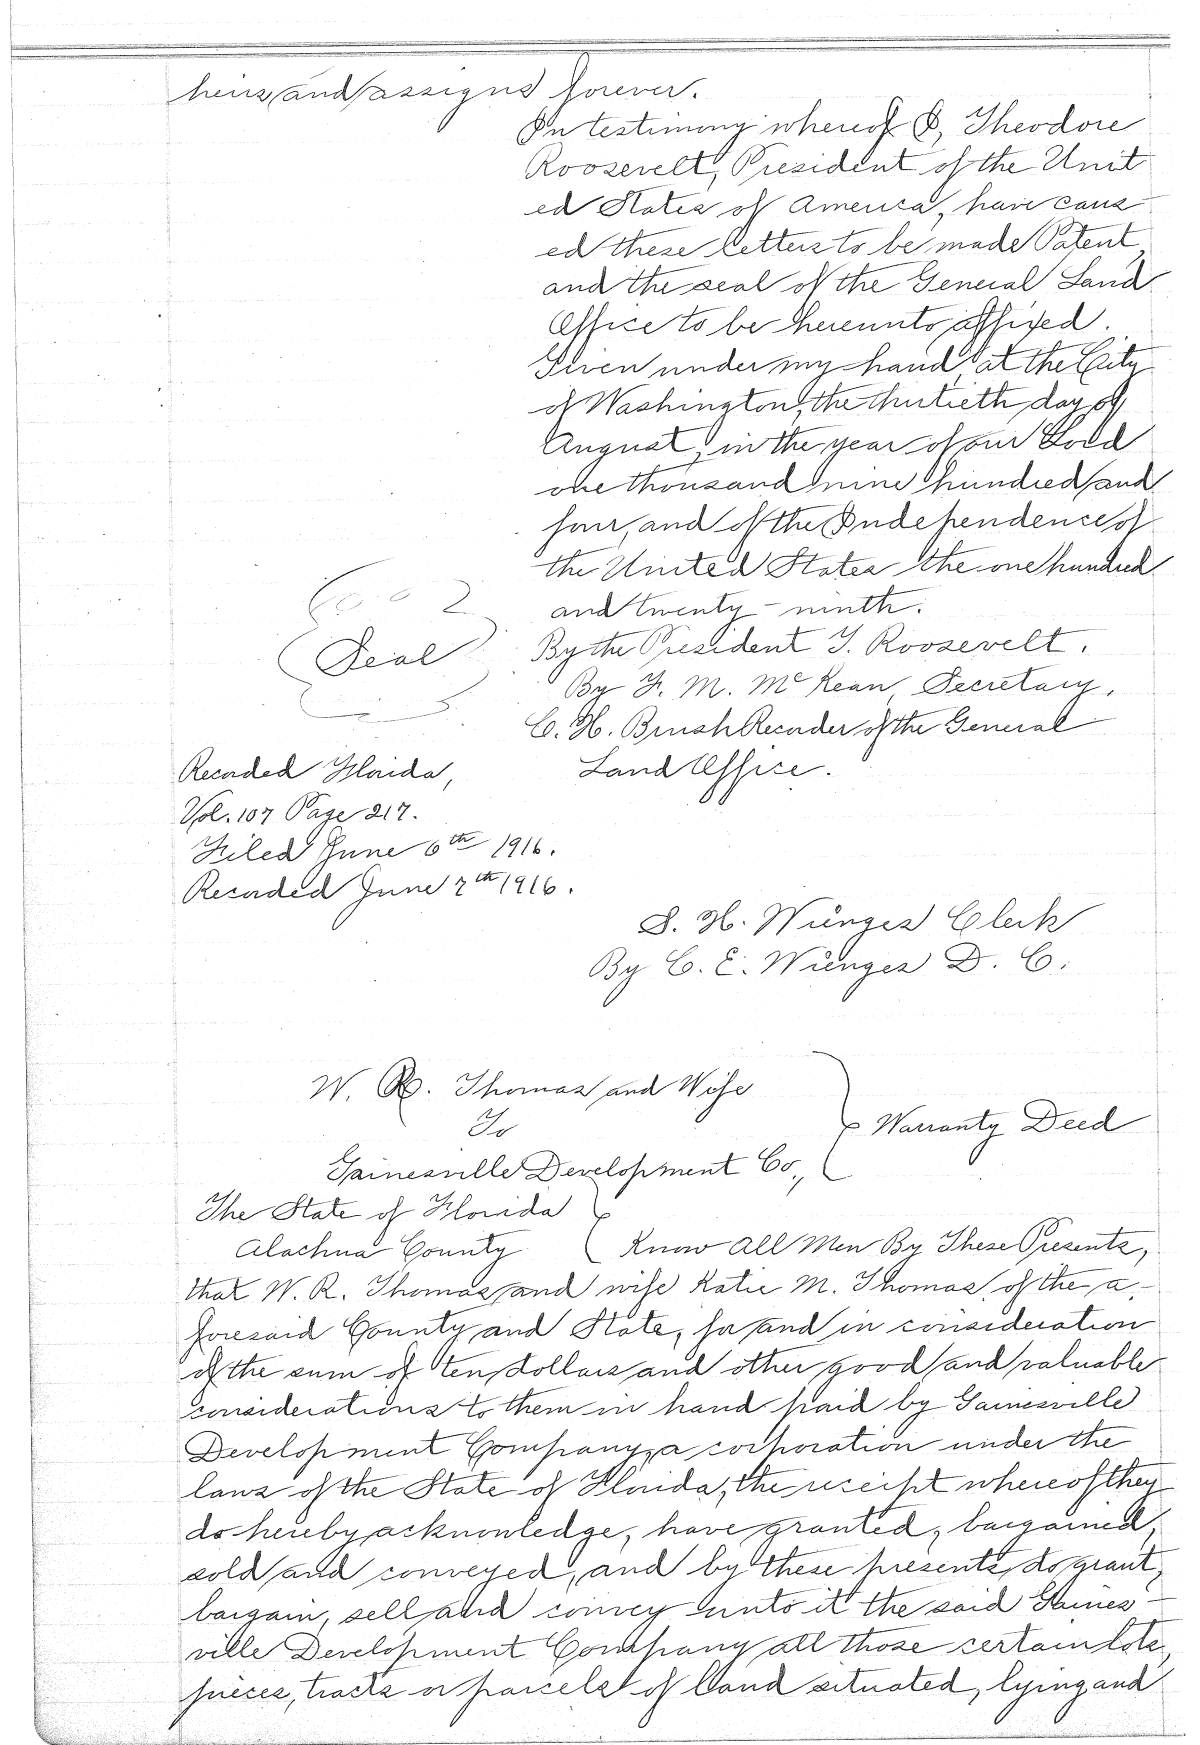 heirs and assigns forever.
In testimony whereof I, Theodore
Roosevelt, President of the Unit
ed States of America, have caus
ed these letters to be made Patent,
and the seal of the General Land
Office to be hereunto affixed.
Given under my hand, at the City
of Washington, the thirtieth day of
August, in the year of our Lord
one thousand nine hundred and
four, and of the Independence of
the United States the one hundred
and twenty-ninth.
Seal
By the President T. Roosevelt.
By F. M. McKean, Secretary,
C. H. Brush Recorder of the General
Land Office.
Recorded Florida,
Vol. 107 Page 217.
Filed June 6th 1916.
Recorded June 7th 1916.
S. H. Wienges Clerk
By C. E. Wienges D. C.
W. R. Thomas and Wife
To
Gainesville Development Co.,
Warranty Deed
The State of Florida
Alachua County
Know All Men By These Presents,
that W. R. Thomas and wife Katie M. Thomas, of the a-
foresaid County and State, for and in consideration
of the sum of ten dollars and other good and valuable
considerations to them in hand paid by Gainesville
Development Company, a corporation under the
laws of the State of Florida, the receipt whereof they
do hereby acknowledge, have granted, bargained,
sold and conveyed, and by these presents do grant,
bargain, sell and convey unto it the said Gaines-
ville Development Company all those certain lots,
pieces, tracts or parcels of land situated, lying and